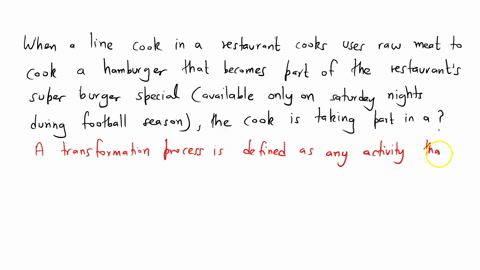 When a line cook in a restaurant cooks uses raw meat to
cook a hamburger that becomes part of the restaurant's
super burger special (available only on saturday nights
during football season), the cook is taking part in a ?
A transformation process is defined as any activity tha